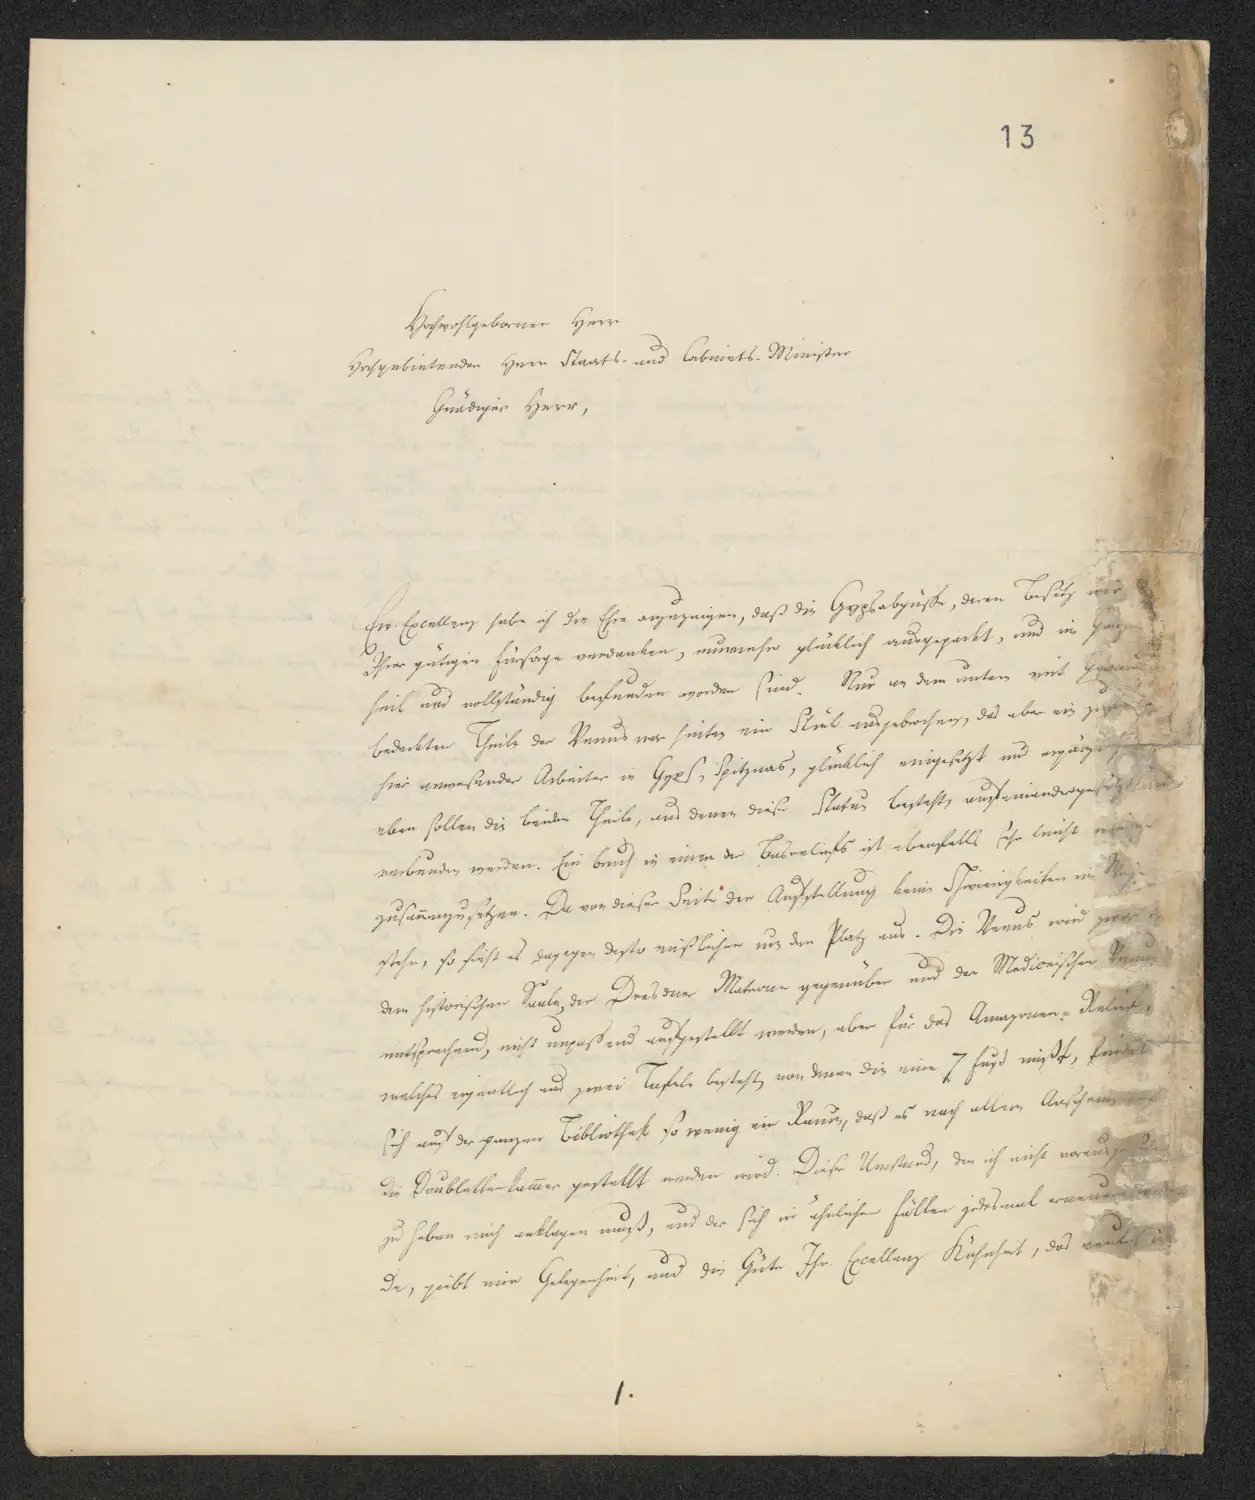 13
Hochwohlgeborner Herr
Hochgebietender Herr Staats- und Cabinets-Minister
Gnädiger Herr,
Ew. Excellenz habe ich die Ehre anzuzeigen, daß die Gypsabgüsse, deren Besitz wir
Ihrer gütigen Fürsorge verdanken, nunmehr glücklich ausgepackt, und im
heil und vollständig befunden worden sind. Nur an dem untern mit
bedeckten Theile der Venus war hinten ein Stück ausgebrochen, das aber ein
hier anwesender Arbeiter in Gyps, Spitznas, glücklich eingesetzt und
eben sollen die beiden Theile, aus denen diese Statue besteht,
verbunden werden. Ein Bruch in einem der Basreliefs ist ebenfalls sehr leicht
zusammenzusetzen. Da von dieser Seite der Aufstellung keine Schwierigkeiten im
stehn, so sieht es dagegen desto mißlicher um den Platz aus. Die Venus wird
dem historischen Saale, der Dresdner Matrone gegenüber und der Mediceischen Venus
entsprechend, nicht unpassend aufgestellt werden, aber für das Amazonen-Relief,
welches eigentlich aus zwei Tafeln besteht, von denen die eine 7 Fuß mißt, findet
sich auf der ganzen Bibliothek so wenig ein Raum, daß es nach allem Anschein
die Doublettenkammer gestellt werden wird. Dieser Umstand, den ich nicht
zu haben mich anklagen muß, und der sich in ähnlichen Fällen jedesmal erneuern
de, giebt mir Gelegenheit, und die Güte Ihr. Excellenz Kühnheit, das
1.